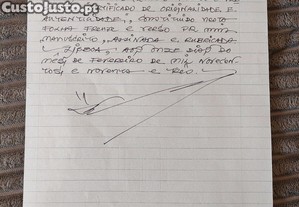 CustoJusto.pt
CERTIFICADO DE ORIGINALIDADE E
AUTENTICIDADE, CONSTITUÍDO NESTA
FOLHA FRENTE E VERSO
MANUSCRITO, ASSINADA E RUBRICADA
AOS ONZE DIAS DO
MÊS DE FEVEREIRO DE MIL NOVECEN-
TOS E NOVENTA E
CustoJusto.pt